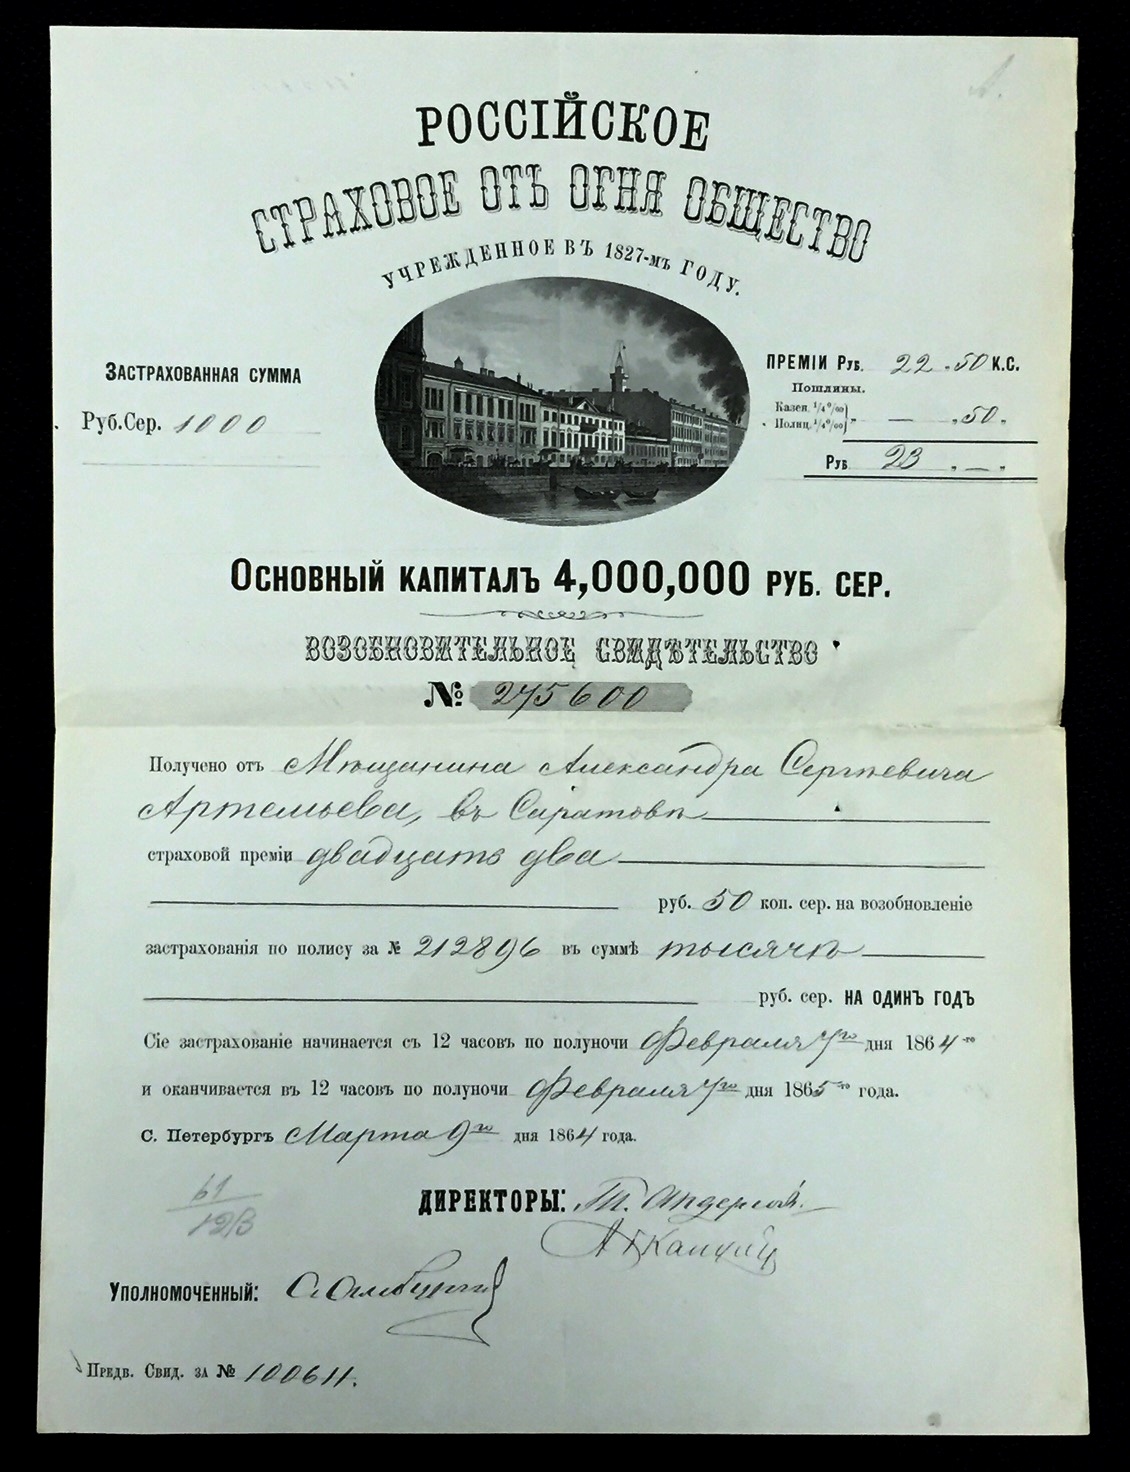 РОССІЙСКОЕ
СТРАХОВОЕ ОТЪ ОГНЯ ОБЩЕСТВО
УЧРЕЖДЕННОЕ ВЪ 1827-мъ ГОДУ.
ЗАСТРАХОВАННАЯ СУММА
Руб.Сер. 1000
ПРЕМІИ РУБ. 22.50 К.С.
Пошлины.
Казен. 1/4 0/00
Полиц. 1/4 0/00 „ — „50„
РУБ 23 „—„
ОСНОВНЫЙ КАПИТАЛЪ 4,000,000 РУБ. СЕР.
ВОЗОБНОВИТЕЛЬНОЕ СВИДѢТЕЛЬСТВО
№ 275600
Получено отъ Мѣщанина Александра Сергѣевича
Артемьева, въ Саратовѣ
страховой преміи двадцать два
руб. 50 коп. сер. на возобновленіе
застрахованія по полису за № 212896 въ суммѣ тысячѣ
руб. сер. НА ОДИНЪ ГОДЪ
Сіе застрахованіе начинается съ 12 часовъ по полуночи Февраля 7го дня 1864-го
и оканчивается въ 12 часовъ по полуночи Февраля 7го дня 1865го года.
С. Петербургъ Марта 9го дня 1864 года.
61
123
ДИРЕКТОРЫ:
УПОЛНОМОЧЕННЫЙ:
ПРЕДВ. СВИД. ЗА № 100611.